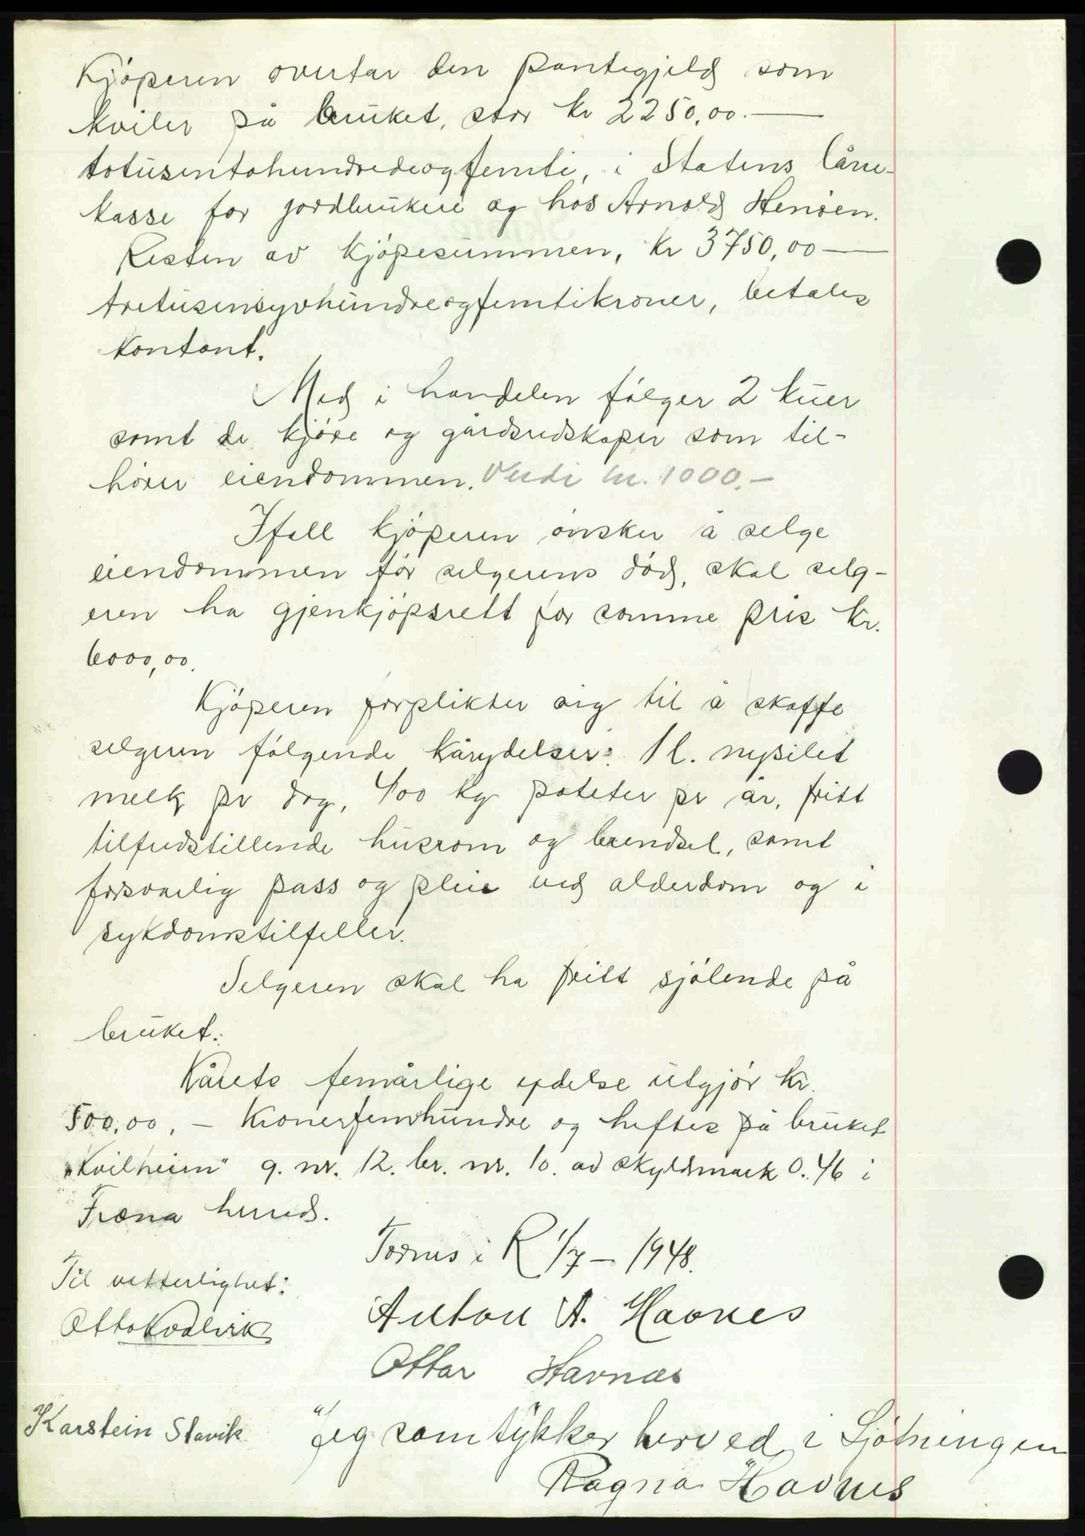 Kjöperen overtar den pantegjeld som
kviler på bruket, stor kr 2250,00.—
totusentohundredeogfemti, i Statens låne-
kasse for jordbrukere og hos Arnold Hensen.
Resten av kjöpesummen, kr 3750,00 —
tretusensyvhundreogfemtikroner, betales
kontant.
Med i handelen fölger 2 kuer
samt de kjöre og gårdsredskaper som til-
hörer eiendommen. Verdi kr. 1000.—
Ifall kjöperen önsker å selge
eiendommen för selgerens död, skal selg-
eren ha gjenkjöpsrett for samme pris kr.
6000,00.
Kjöperen forplikter sig til å skaffe
selgeren fölgende kårydelser: 1 l. nysilet
melk pr dag, 400 kg poteter pr år, fritt
tilfredstillende husrom og brendsel, samt
forsvarlig pass og pleie ved alderdom og i
sykdomstilfeller.
Selgeren skal ha fritt sjölende på
bruket.
Kårets femårlige ydelse utgjör kr.
500,00. — kronerfemhundre og heftes på bruket
"Kvilheim" g. nr. 12. br. nr. 10. av skyldmark 0.46 i
Fræna herred.
Tornes i R 1/7 — 1948.
Til vitterlighet:
Anton A. Havnes
Otto Kvalvik
Ottar Havnæs
Karstein Slavik
Jeg samtykker herved i Skjötningen
Ragna Havnes